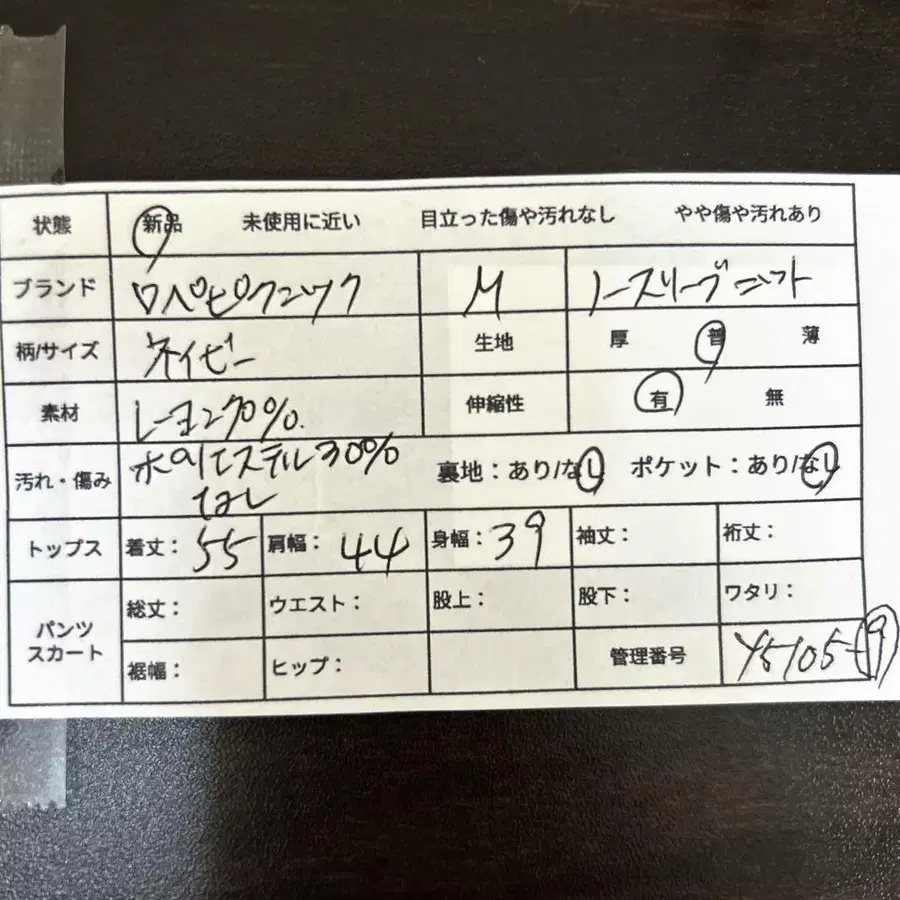 状態 新品 未使用に近い 目立った傷や汚れなし やや傷や汚れあり
ブランド ロペピクニック M ノースリーブニット
柄/サイズ ネイビー 生地 厚 普 薄
素材 レーヨン70% 伸縮性 有 無
ポリエステル30%
汚れ・傷み なし 裏地:あり/なし ポケット:あり/なし
トップス 着丈: 55 肩幅: 44 身幅: 39 袖丈: 裄丈:
パンツ スカート
総丈: ウエスト: 股上: 股下: ワタリ:
裾幅: ヒップ: 管理番号 Y5105-9